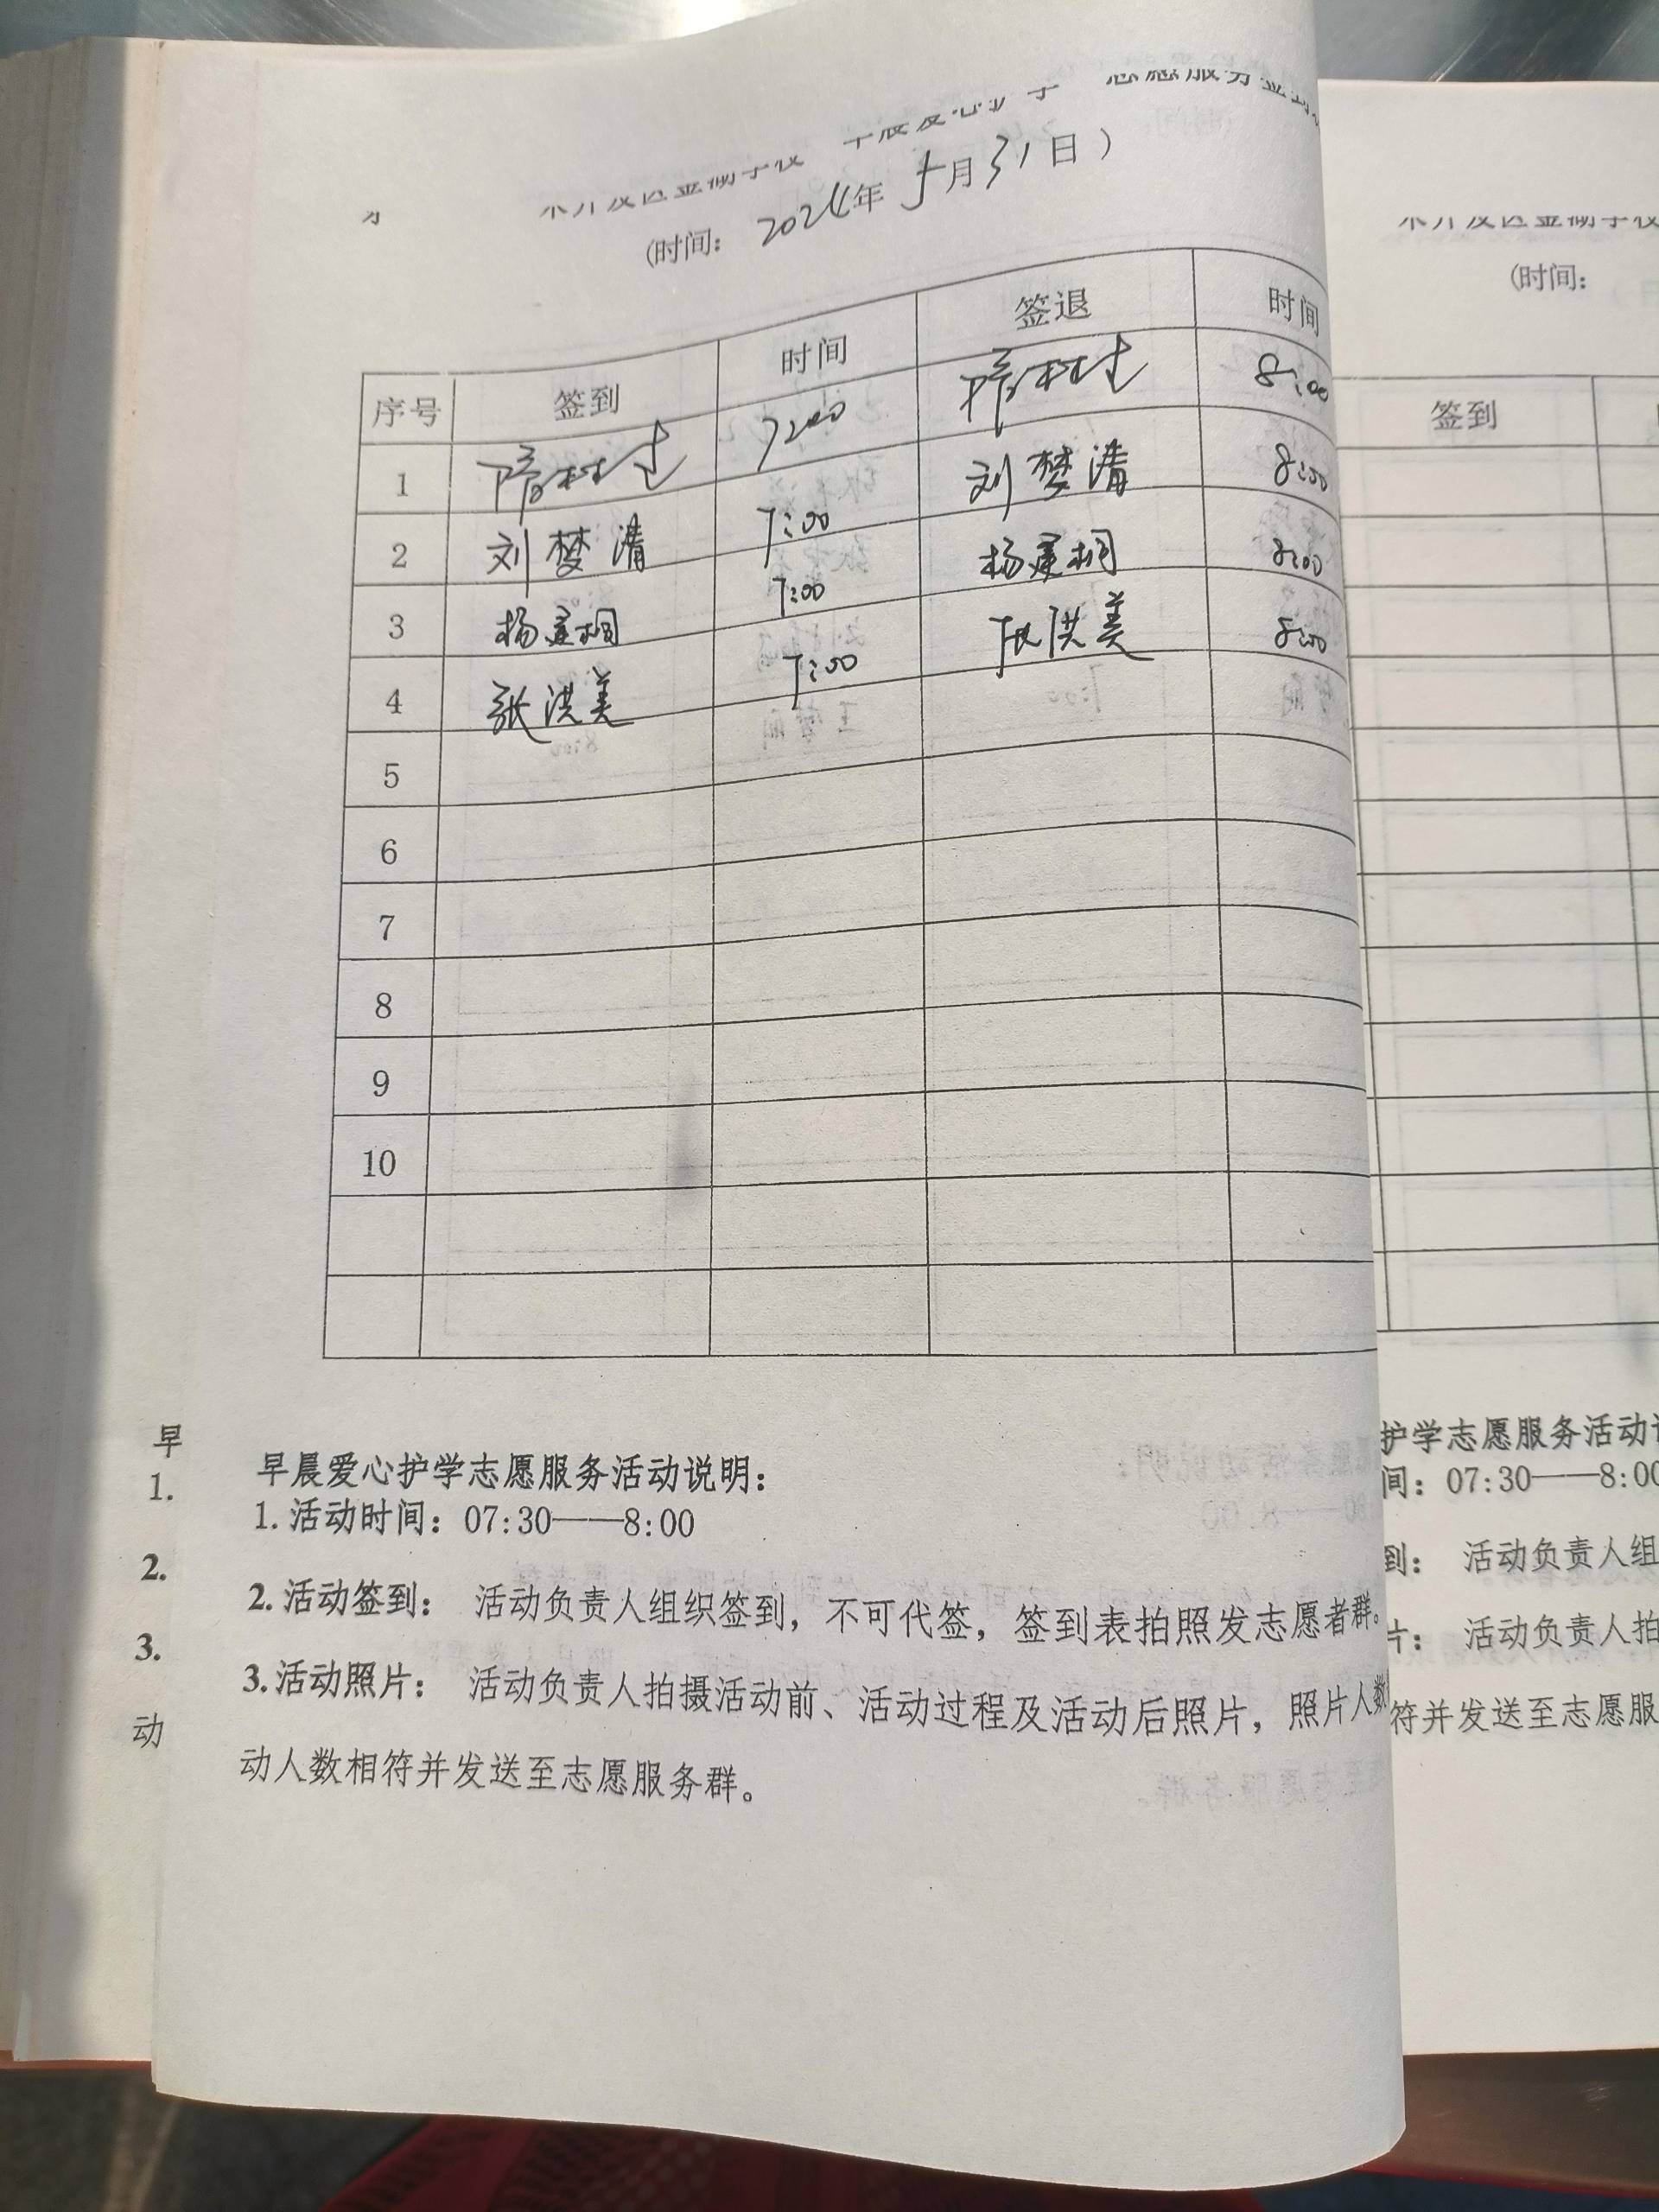 (时间: 2024年5月31日)
序号 签到 时间 签退 时间
1 7:00 8:00
2 刘梦清 7:00 刘梦清 8:00
3 杨 桐 7:00 杨 桐 8:00
4 张洪美 7:00 张洪美 8:00
5
6
7
8
9
10
早晨爱心护学志愿服务活动说明:
1.活动时间: 07:30——8:00
2.活动签到: 活动负责人组织签到,不可代签,签到表拍照发志愿者群。
3.活动照片: 活动负责人拍摄活动前、活动过程及活动后照片,照片人数
动人数相符并发送至志愿服务群。
早
1.
2.
3.
动
(时间:
签到
护学志愿服务活动
间: 07:30——8:00
到: 活动负责人组
片: 活动负责人拍
符并发送至志愿服